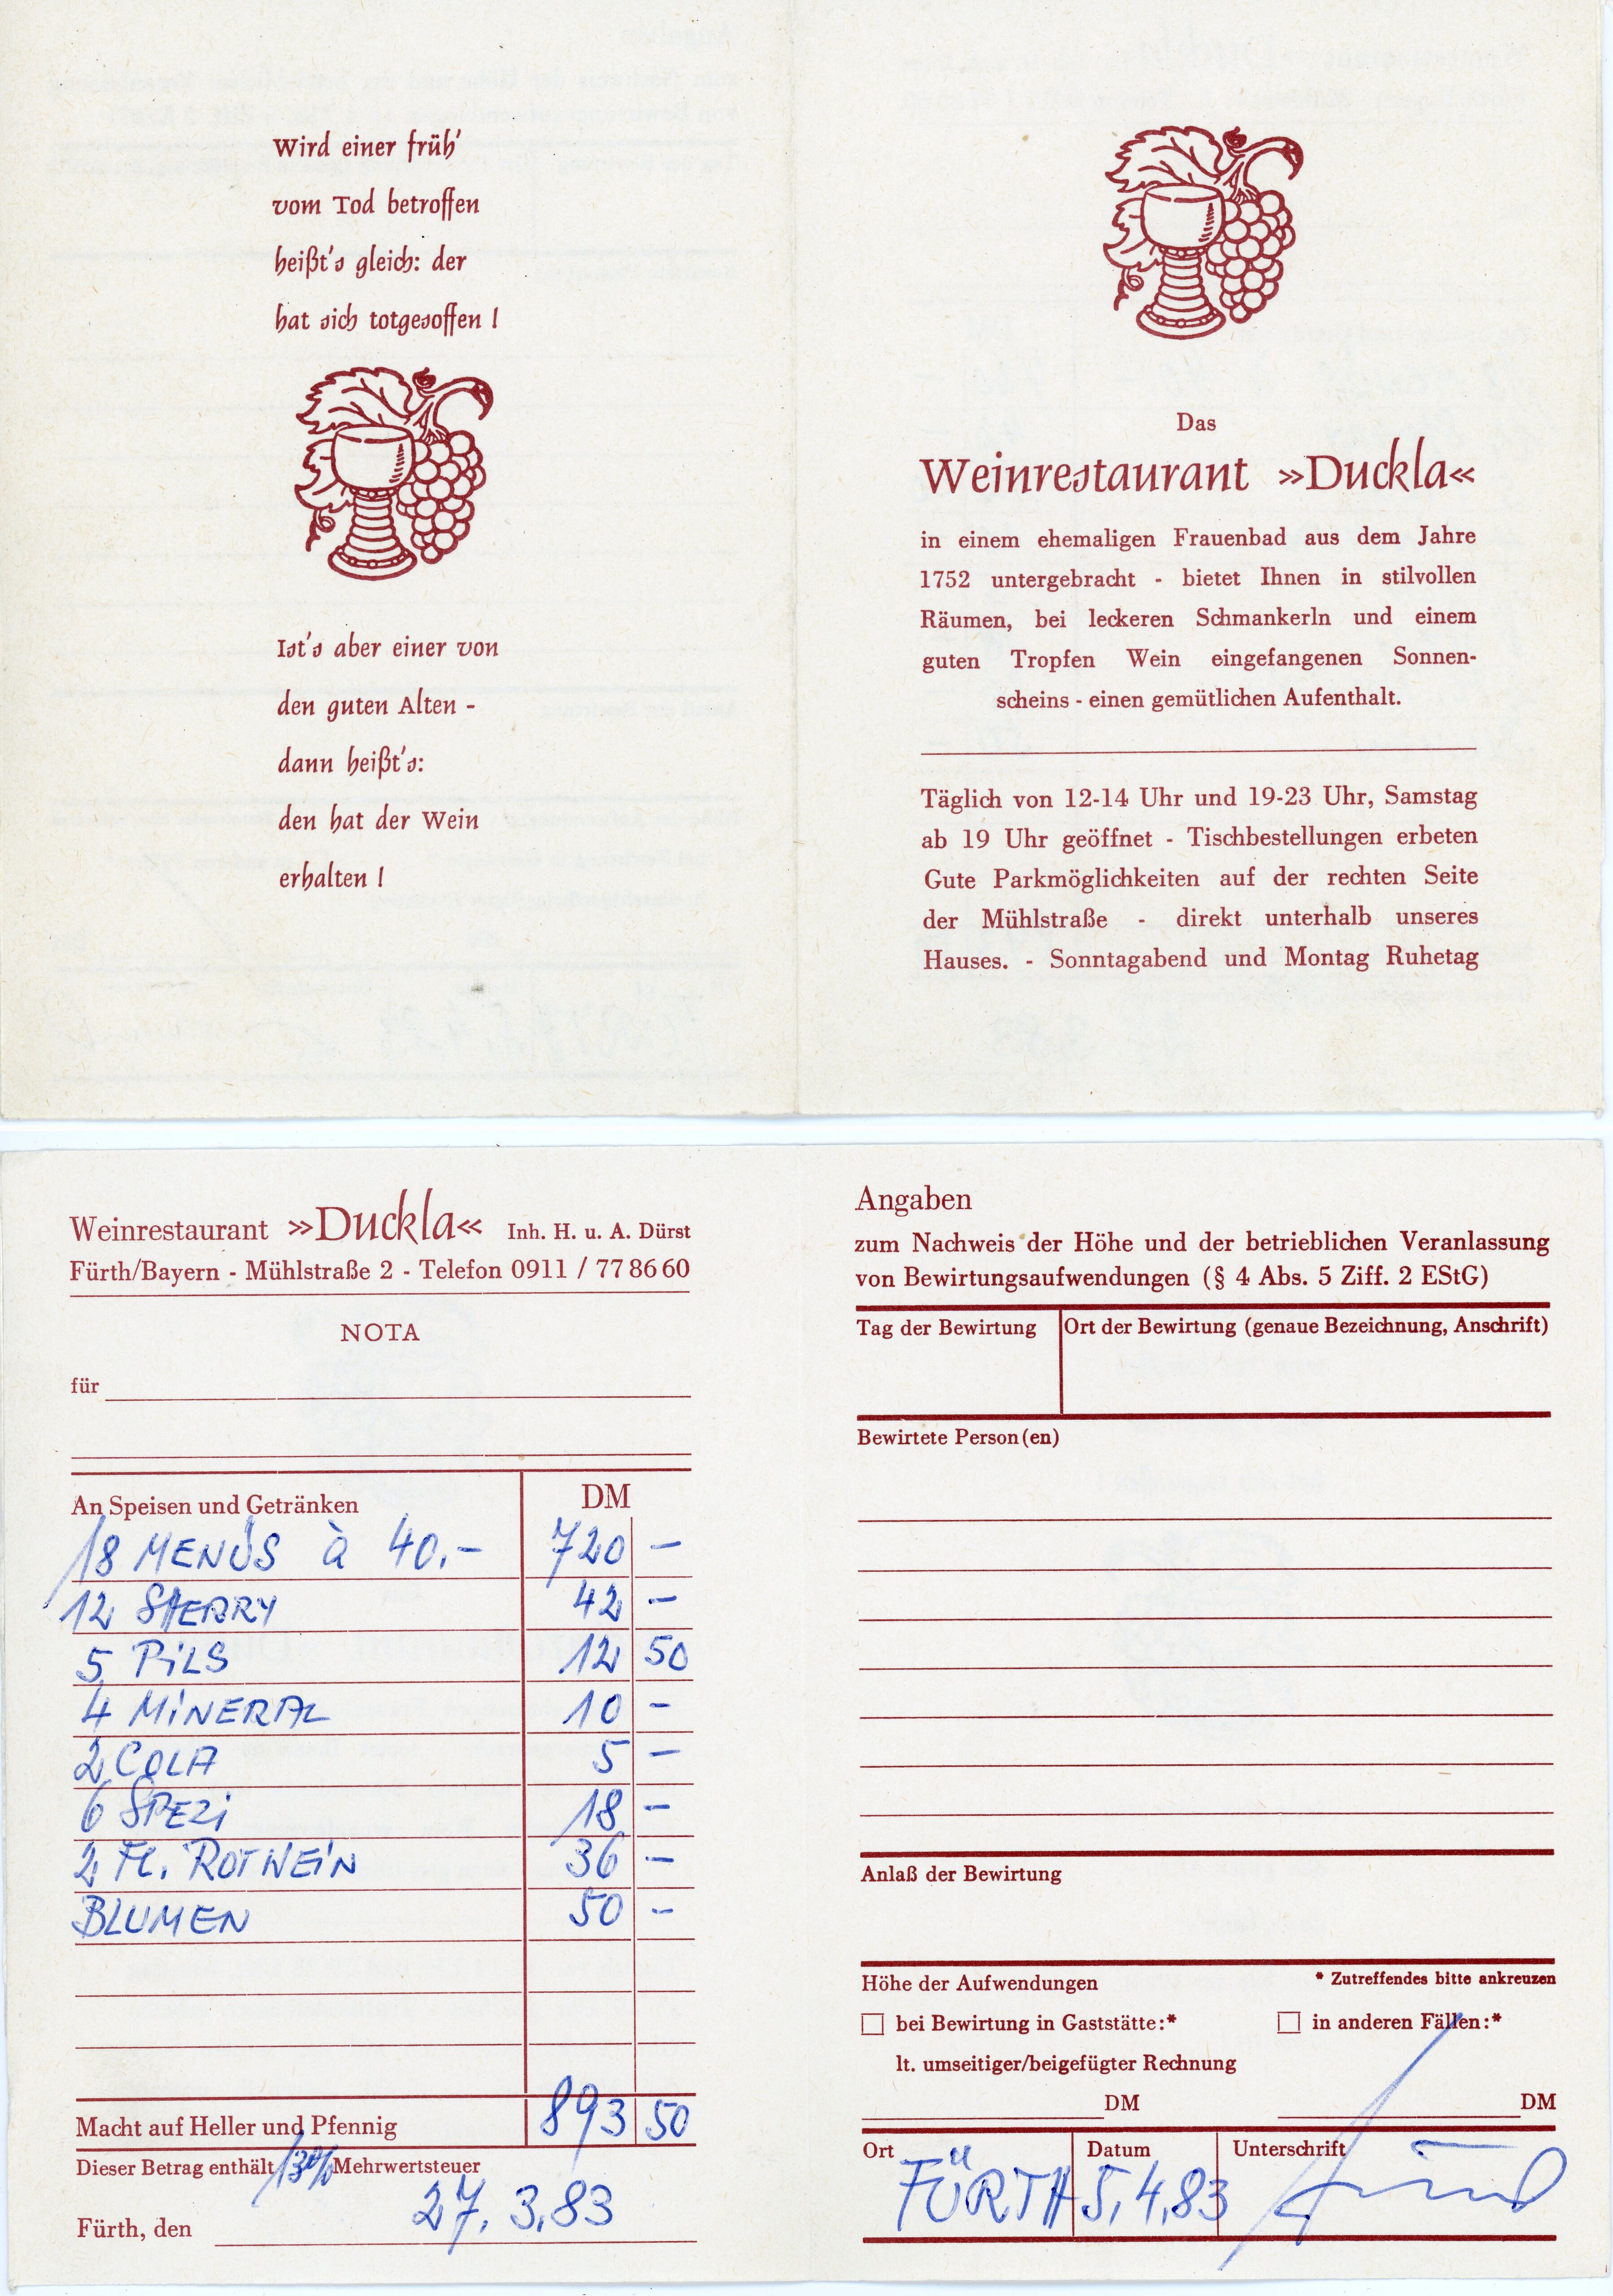 Wird einer früh'
vom Tod betroffen
heißt's gleich: der
hat sich totgesoffen !
Ist's aber einer von
den guten Alten -
dann heißt's:
den hat der Wein
erhalten !
Das
Weinrestaurant »Duckla«
in einem ehemaligen Frauenbad aus dem Jahre
1752 untergebracht - bietet Ihnen in stilvollen
Räumen, bei leckeren Schmankerln und einem
guten Tropfen Wein eingefangenen Sonnen-
scheins - einen gemütlichen Aufenthalt.
Täglich von 12-14 Uhr und 19-23 Uhr, Samstag
ab 19 Uhr geöffnet - Tischbestellungen erbeten
Gute Parkmöglichkeiten auf der rechten Seite
der Mühlstraße - direkt unterhalb unseres
Hauses. - Sonntagabend und Montag Ruhetag
Weinrestaurant »Duckla« Inh. H. u. A. Dürst
Fürth/Bayern - Mühlstraße 2 - Telefon 0911 / 77 86 60
NOTA
für
An Speisen und Getränken DM
18 MENÜS à 40.- 720 -
12 SHERRY 42 -
5 PiLS 12 50
4 MiNERAL 10 -
2 COLA 5 -
6 SPEZi 18 -
2 Fl. ROTWEiN 36 -
BLUMEN 50 -
Macht auf Heller und Pfennig 893 50
Dieser Betrag enthält 13% Mehrwertsteuer
Fürth, den 27. 3.83
Angaben
zum Nachweis der Höhe und der betrieblichen Veranlassung
von Bewirtungsaufwendungen (§ 4 Abs. 5 Ziff. 2 EStG)
Tag der Bewirtung Ort der Bewirtung (genaue Bezeichnung, Anschrift)
Bewirtete Person(en)
Anlaß der Bewirtung
Höhe der Aufwendungen * Zutreffendes bitte ankreuzen
bei Bewirtung in Gaststätte:* in anderen Fällen:*
lt. umseitiger/beigefügter Rechnung
DM DM
Ort Datum Unterschrift
FÜRTH 5.4.83